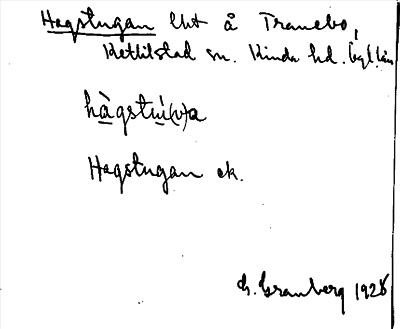 Hagstugan lht å Tranebo,
Kettilstad sn. Kinda hd. Ögl. län
hàgstùi(v)a
Hagstugan ek.
Granberg 192